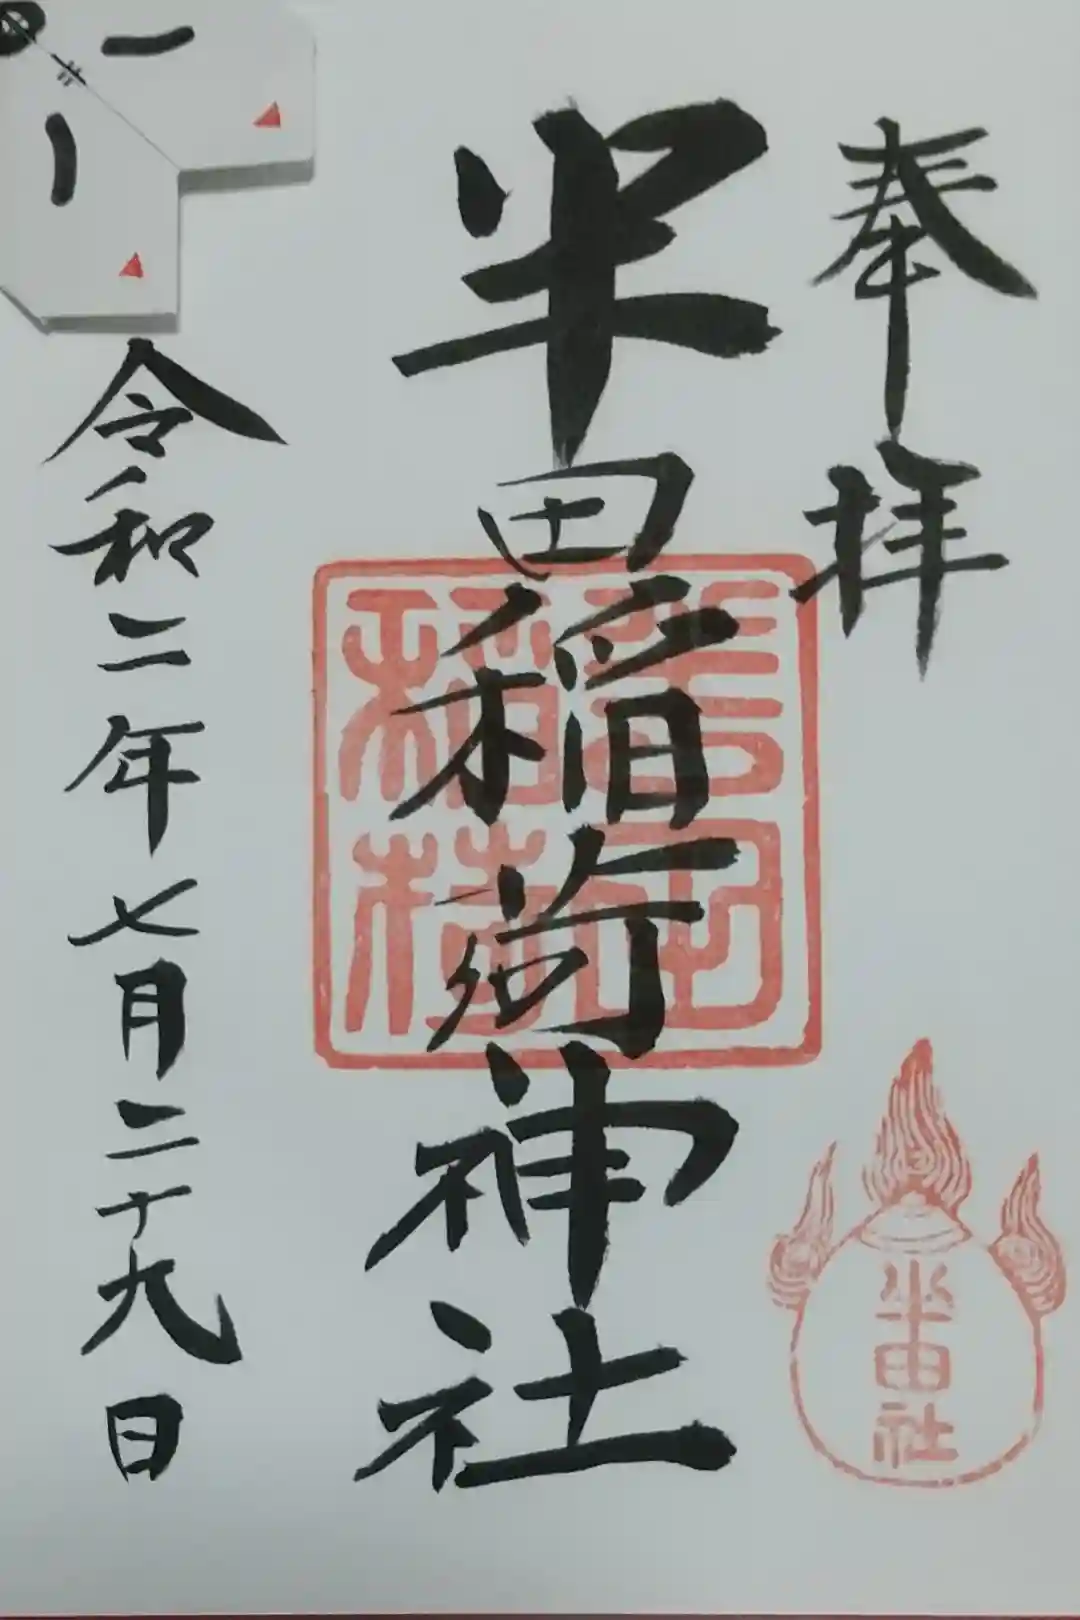 奉拝
半田稲荷神社
半田社
令和二年七月二十九日